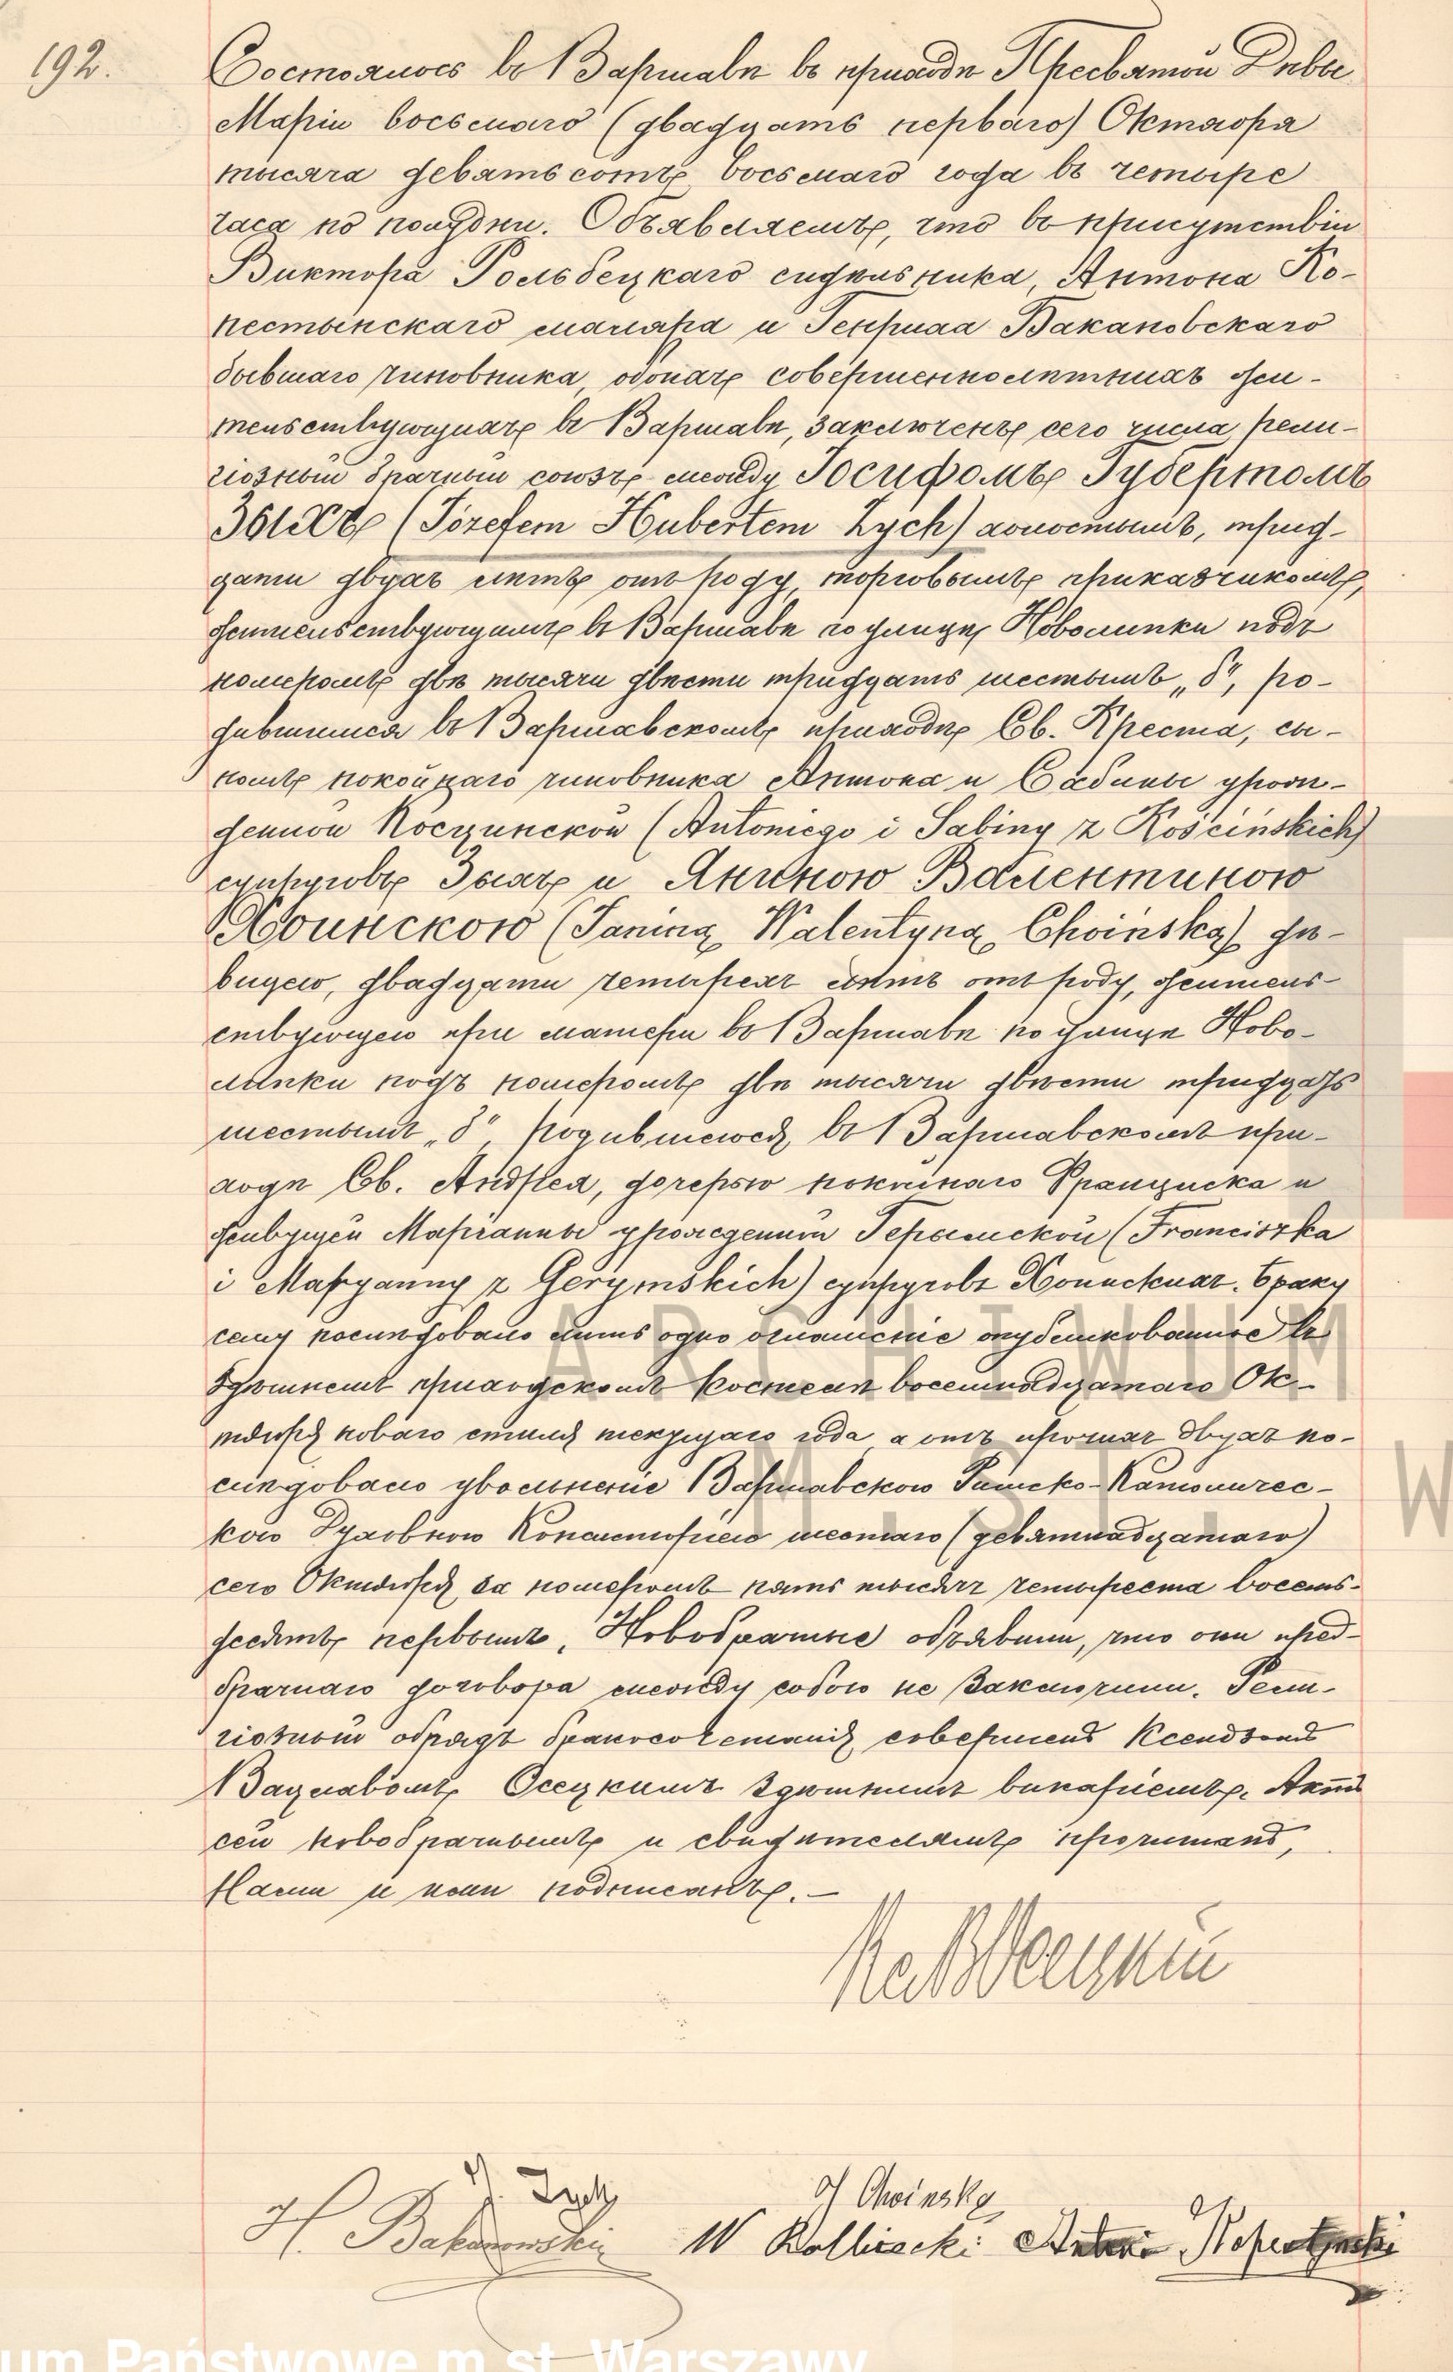 192.
Состоялось въ Варшавѣ въ приходѣ Пресвятой Дѣвы
Маріи восьмаго (двадцать перваго) Октября
тысяча девятьсотъ восьмаго года въ четыре
часа по полудни. Объявляемъ, что въ присутствіи
Виктора Рольбецкаго садовника, Антона Ко-
пестынскаго маляра и Генриха Бакановскаго
бывшаго чиновника, обоихъ совершеннолѣтнихъ жи-
тельствующихъ въ Варшавѣ, заключенъ сего числа рели-
гіозный брачный союзъ между Іосифомъ Губертомъ
Зыхъ (Józefem Hubertem Zych) холостымъ, трид-
цати двухъ лѣтъ отъ роду, торговымъ приказчикомъ,
жительствующимъ въ Варшавѣ по улицѣ Новолипки подъ
номеромъ двѣ тысячи двѣсти тридцать шестымъ „б“, ро-
дившимся въ Варшавскомъ приходѣ Св. Креста, сы-
номъ покойнаго чиновника Антона и Сабины урож-
денной Косцинской (Antoniego i Sabiny z Kościńskich)
супруговъ Зыхъ и Яниною Валентиною
Хоинскою (Janiną Walentyną Choińską) дѣ-
вицею, двадцати четырехъ лѣтъ отъ роду, житель-
ствующею при матери въ Варшавѣ по улицѣ Ново-
липки подъ номеромъ двѣ тысячи двѣсти тридцать
шестымъ „б“, родившеюся въ Варшавскомъ при-
ходѣ Св. Андрея, дочерью покойнаго Францишка и
живущей Маріанны урожденной Герымской (Franciszka
i Maryanny z Gerymskich) супруговъ Хоинскихъ. Браку
сему послѣдовало лишь одно оглашеніе опубликованное въ
здѣшнемъ приходскомъ костелѣ восемнадцатаго Ок-
тября новаго стиля текущаго года а отъ прочихъ двухъ по-
слѣдовало увольненіе Варшавскою Римско-Католичес-
кою Духовною Консисторіею шестаго (девятнадцатаго)
сего Октября за номеромъ пять тысячъ четыреста восемь-
десятъ первымъ. Новобрачные объявили, что они пред-
брачнаго договора между собою не заключили. Рели-
гіозный обрядъ бракосочетанія совершенъ Ксендзомъ
Вацлавомъ Осецкимъ здѣшнимъ викаріемъ. Актъ
сей новобрачнымъ и свидѣтелямъ прочитанъ,
Нами и ими подписанъ.—
J. Zych
J Choinska
H. Bakanowski
W Rolbiecki Antoni Kopestyński
ARCHIWUM
M. ST. W
um Państwowe m.st. Warszawy